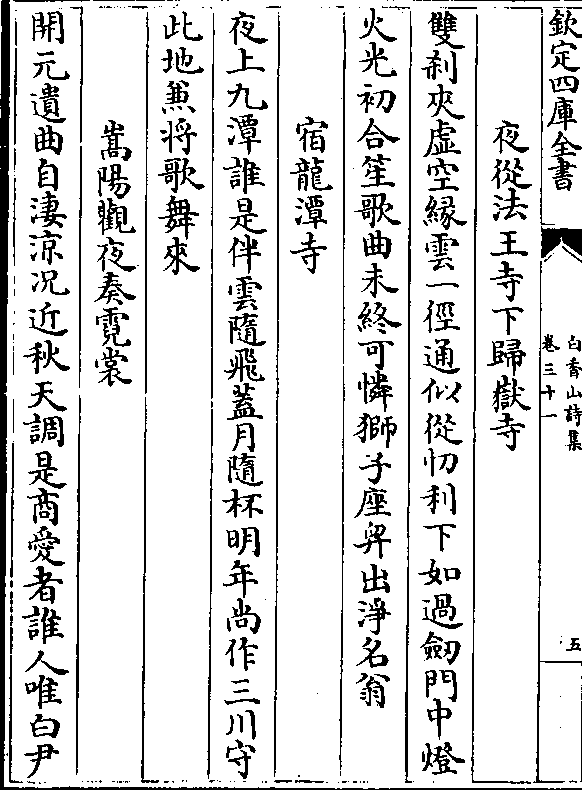 欽定四庫全書
白香山詩集
卷三十一
五
夜從法王寺下歸嶽寺
雙刹夾虛空緣雲一徑通似從忉利下如過劒門中燈
火光初合笙歌曲未終可憐獅子座舁出淨名翁
宿龍潭寺
夜上九潭誰是伴雲隨飛蓋月隨杯明年尚作三川守
此地兼将歌舞來
嵩陽觀夜奏霓裳
開元遺曲自淒涼况近秋天調是商愛者誰人唯白尹